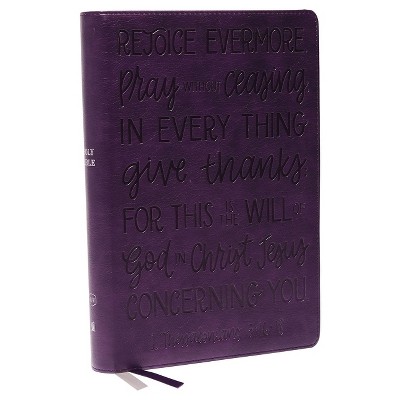 REJOICE EVERMORE
Pray WITHOUT ceasing
IN EVERY THING
give thanks
FOR THIS IS THE WILL OF
God IN Christ Jesus
CONCERNING YOU
1 Thessalonians
HOLY
BIBLE